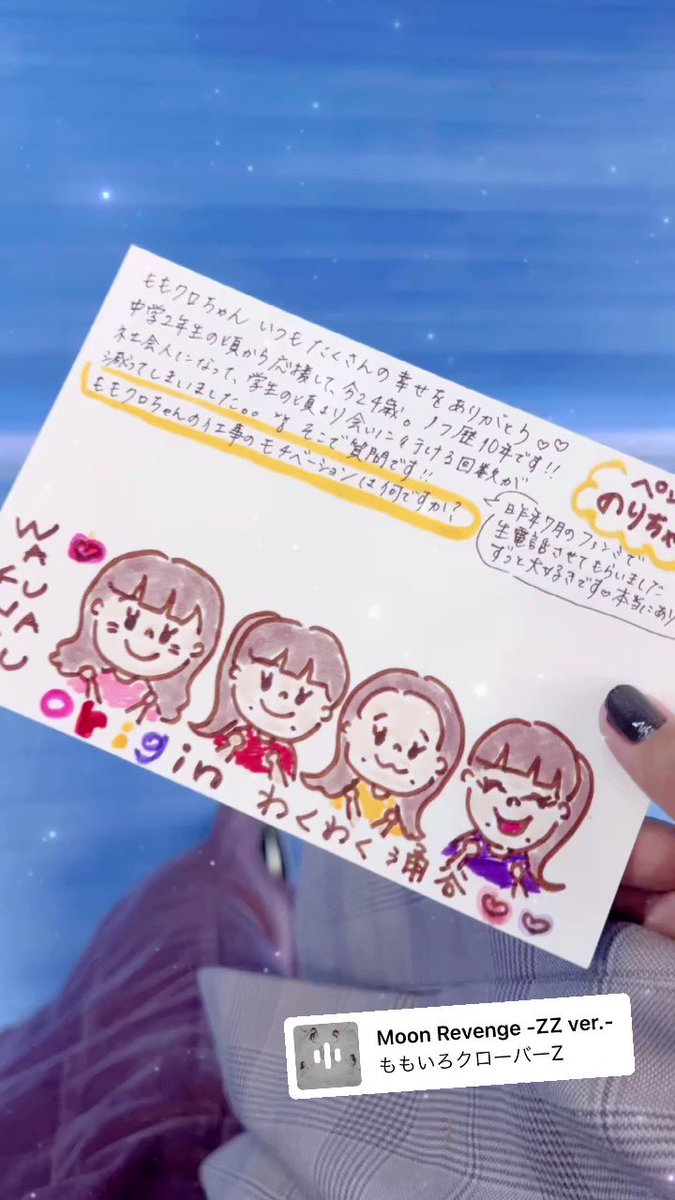 ももクロちゃん いつもたくさんの幸せをありがとう♡♡
中学2年生の頃から応援して、今24歳。ノフ歴10年です!!
社会人になって、学生の頃より会いに行ける回数が
減ってしまいました。。 そこで質問です!!
ももクロちゃんの仕事のモチベーションは何ですか?
ペン
のりちゃ
昨年7月のファンさで
生電話させてもらいました
ずっと大好きです♡本当にあり
WAKUWAKU
origin
わくわく涌谷
Moon Revenge -ZZ ver.-
ももいろクローバーZ